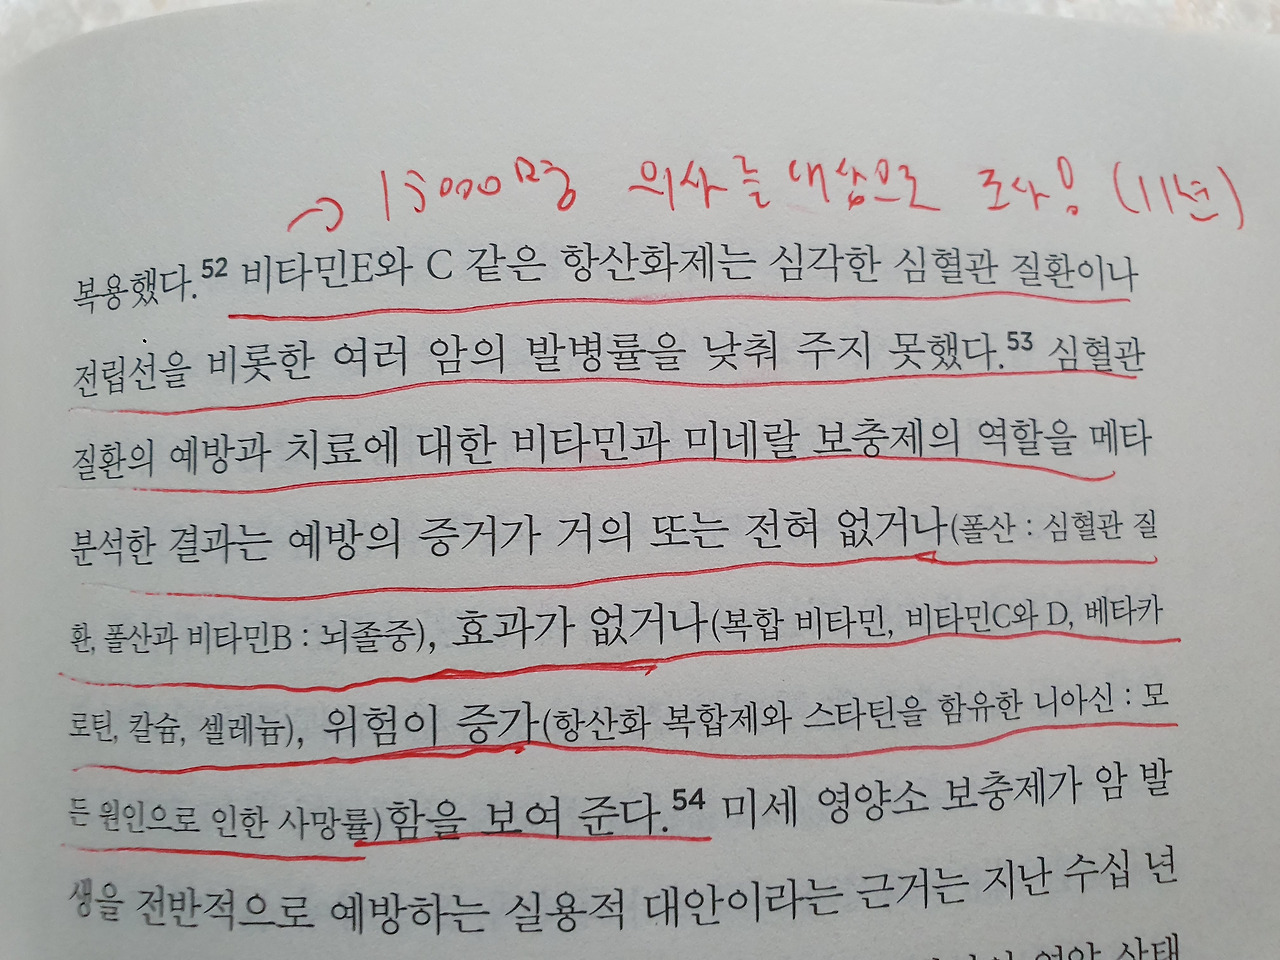 → 15000명 의사를 대상으로 조사함 (11년)
복용했다.52 비타민E와 C 같은 항산화제는 심각한 심혈관 질환이나
전립선을 비롯한 여러 암의 발병률을 낮춰 주지 못했다.53 심혈관
질환의 예방과 치료에 대한 비타민과 미네랄 보충제의 역할을 메타
분석한 결과는 예방의 증거가 거의 또는 전혀 없거나(폴산 : 심혈관 질
환, 폴산과 비타민B : 뇌졸중), 효과가 없거나(복합 비타민, 비타민C와 D, 베타카
로틴, 칼슘, 셀레늄), 위험이 증가(항산화 복합제와 스타틴을 함유한 니아신 : 모
든 원인으로 인한 사망률)함을 보여 준다.54 미세 영양소 보충제가 암 발
생을 전반적으로 예방하는 실용적 대안이라는 근거는 지난 수십 년
영양 상태